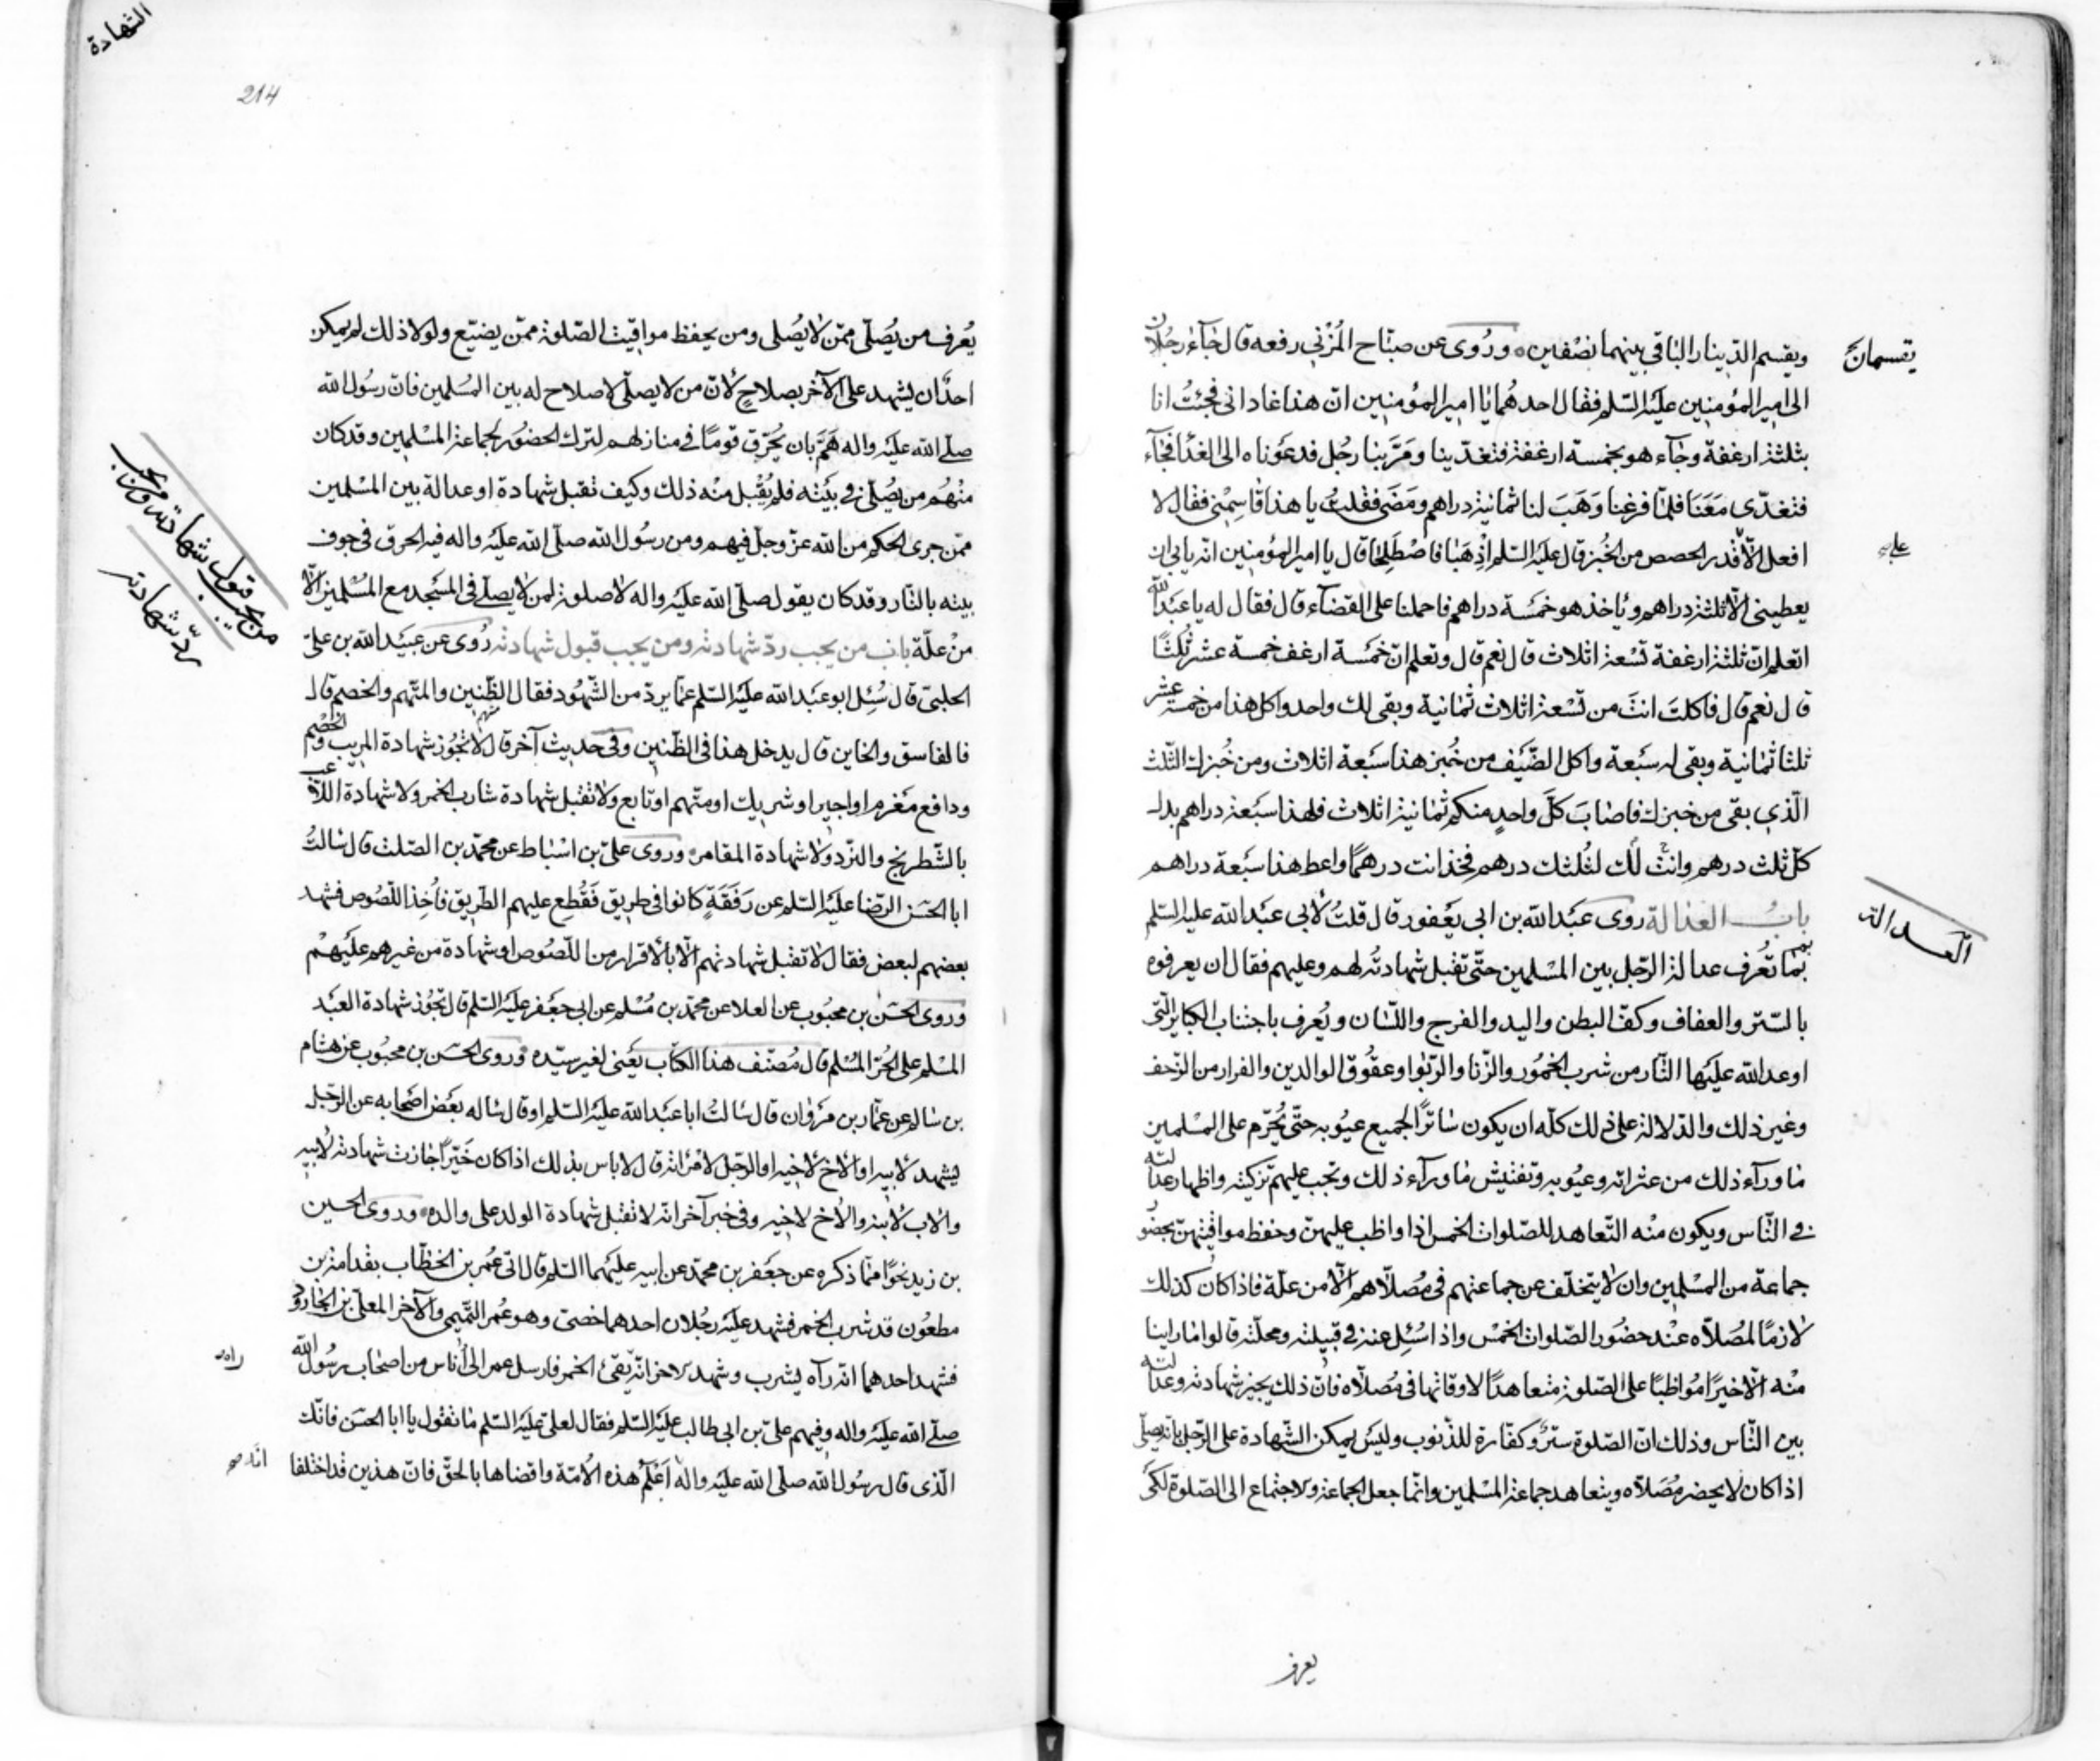 ويقسم الدينار الباقي بينهما نصفين وروى عن صباح المزني رفعه قال جاء رجلان
الى امير المؤمنين عليه السلم فقال احدهما يا امير المؤمنين ان هذا غاداني فجئت انا
بثلثة ارغفة وجاء هو بخمسة ارغفة فتغدينا ومر بنا رجل فدعوناه الى الغدا فجاء
فتغدى معنا فلما فرغنا وهب لنا ثمانية دراهم ومضى فقلت يا هذا قاسمني فقال لا
افعل الا قدر الحصص من الخبز قال عليه السلم اذهبا فاصطلحا قال يا امير المؤمنين انه يابى ان
يعطيني الا ثلثة دراهم وياخذ هو خمسة دراهم فاحملنا على القضاء قال فقال له يا عبد الله
اتعلم ان ثلثة ارغفة تسعة اثلاث قال نعم قال وتعلم ان خمسة ارغف خمسة عشر ثلثا
قال نعم قال فاكلت انت من تسعة اثلاث ثمانية وبقى لك واحد واكل هذا من خمسة عشر
ثلثا ثمانية وبقى له سبعة واكل الضيف من خبز هذا سبعة اثلاث ومن خبزك الثلث
الذي بقى من خبزك فاصاب كل واحد منكم ثمانية اثلاث فلهذا سبعة دراهم بدل
كل ثلث درهم وانت لك لثلثك درهم فخذ انت درهما واعط هذا سبعة دراهم
باب العدالة روى عبد الله بن ابي يعفور قال قلت لابي عبد الله عليه السلم
بما تعرف عدالة الرجل بين المسلمين حتى تقبل شهادته لهم وعليهم فقال ان يعرفوه
بالستر والعفاف وكف البطن واليد والفرج واللسان ويعرف باجتناب الكباير التى
اوعد الله عليها النار من شرب الخمور والزنا والربوا وعقوق الوالدين والفرار من الزحف
وغير ذلك والدلالة على ذلك كله ان يكون ساترا لجميع عيوبه حتى يحرم على المسلمين
ما وراء ذلك من عثراته وعيوبه وتفتيش ما وراء ذلك وتجب عليهم تزكيته واظهار عدالته
في الناس ويكون منه التعاهد للصلوات الخمس اذا واظب عليهن وحفظ مواقيتهن بحضور
جماعة من المسلمين وان لا يتخلف عن جماعتهم في مصلاهم الا من علة فاذا كان كذلك
لازما لمصلاه عند حضور الصلوات الخمس واذا سئل عنه في قبيلته ومحلته قالوا ما راينا
منه الا خيرا مواظبا على الصلوة متعاهدا لاوقاتها في مصلاه فان ذلك يجيز شهادته وعدالته
بين الناس وذلك ان الصلوة ستر وكفارة للذنوب وليس يمكن الشهادة على الرجل بانه يصلي
اذا كان لا يحضر مصلاه ويتعاهد جماعة المسلمين وانما جعل الجماعة والاجتماع الى الصلوة لكى
يعرف
يقسمان
العدالة
الشهادة
214
يعرف من يصلى ممن لا يصلى ومن يحفظ مواقيت الصلوة ممن يضيع ولولا ذلك لم يمكن
احدا ان يشهد على الآخر بصلاح لان من لا يصلى لا صلاح له بين المسلمين فان رسول الله
صلى الله عليه واله هم بان يحرق قوما في منازلهم لترك الحضور لجماعة المسلمين وقد كان
منهم من يصلى في بيته فلم يقبل منه ذلك وكيف تقبل شهادة او عدالة بين المسلمين
ممن جرى الحكم من الله عز وجل فيهم ومن رسول الله صلى الله عليه واله فيه الحرق في جوف
بيته بالنار وقد كان يقول صلى الله عليه واله لا صلوة لمن لا يصلى في المسجد مع المسلمين الا
من علة باب من يجب رد شهادته ومن يجب قبول شهادته روى عن عبيد الله بن على
الحلبى قال سئل ابو عبد الله عليه السلم عما يرد من الشهود فقال الظنين والمتهم والخصم قال
فالفاسق والخاين قال يدخل هذا في الظنين وفي حديث آخر قال لا تجوز شهادة المريب والخصم
ودافع مغرم او اجير او شريك او متهم او تابع ولا تقبل شهادة شارب الخمر ولا شهادة اللاعب
بالشطرنج والنرد ولا شهادة المقامر وروى على بن اسباط عن محمد بن الصلت قال سالت
ابا الحسن الرضا عليه السلم عن رفقة كانوا في طريق فقطع عليهم الطريق فاخذ اللصوص فشهد
بعضهم لبعض فقال لا تقبل شهادتهم الا بالاقرار من اللصوص او شهادة من غيرهم عليهم
وروى الحسن بن محبوب عن العلا عن محمد بن مسلم عن ابى جعفر عليه السلم قال تجوز شهادة العبد
المسلم على الحر المسلم قال مصنف هذا الكتاب يعنى لغير سيده وروى الحسن بن محبوب عن هشام
بن سالم عن عمار بن مروان قال سالت ابا عبد الله عليه السلم او قال ساله بعض اصحابه عن الرجل
يشهد لابيه او الاخ لاخيه او الرجل لامراته قال لا باس بذلك اذا كان خيرا جازت شهادته لابيه
والاب لابنه والاخ لاخيه وفي خبر آخر انه لا تقبل شهادة الولد على والده وروى الحسين
بن زيد نحوا مما ذكره عن جعفر بن محمد عن ابيه عليهما السلم قال اتى عمر بن الخطاب بقدامة بن
مطعون قد شرب الخمر فشهد عليه رجلان احدهما خصى وهو عمر التميمي والآخر المعلى بن الجارود
فشهد احدهما انه رآه يشرب وشهد الاخر انه يقئ الخمر فارسل عمر الى اناس من اصحاب رسول الله
صلى الله عليه واله وفيهم على بن ابى طالب عليه السلم فقال لعلى عليه السلم ما تقول يا ابا الحسن فانك
الذى قال رسول الله صلى الله عليه واله اعلم هذه الامة واقضاها بالحق فان هذين قد اختلفا
من يجب قبول شهادته ومن يجب
رد شهادته
راه